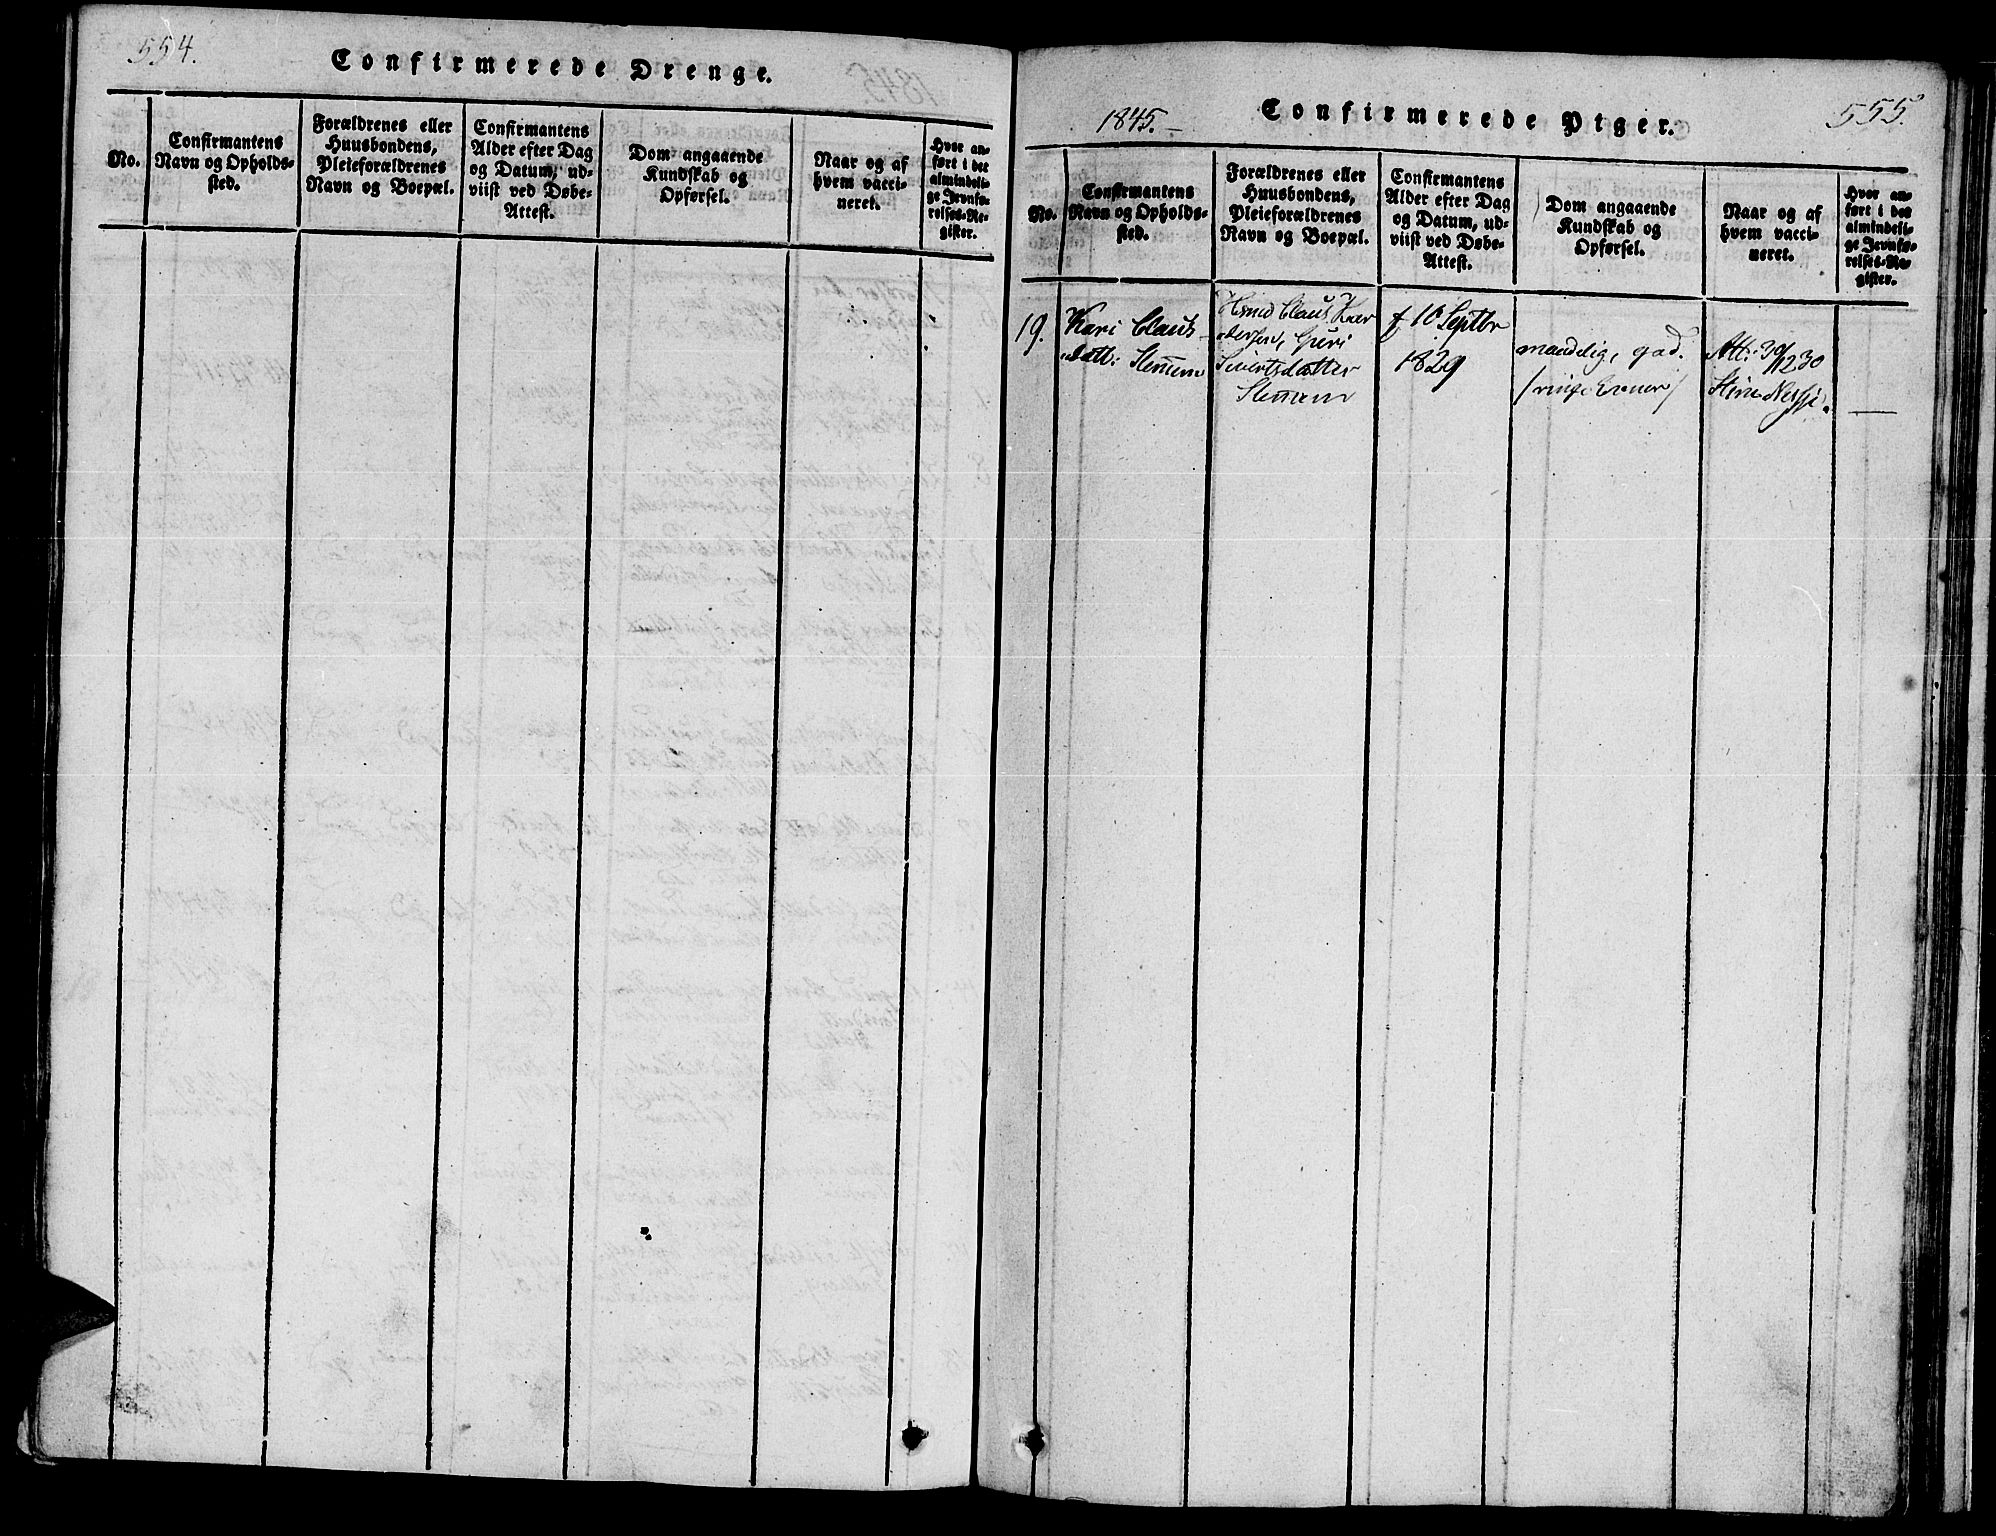 554.
Confirmerede Drenge.
No.
Confirmantens
Navn og Opholds-
sted.
Forældrenes eller
Huusbondens,
Pleieforældrenes
Navn og Boepæl.
Confirmantens
Alder efter Dag
og Datum, ud-
viist ved Døbe-
Attest.
Dom angaaende
Kundskab og
Opførsel.
Naar og af
hvem vacci-
neret.
Hvor an-
ført i det
almindeli-
ge Jevnfø-
relses-Re-
gister.
1845.
Confirmerede Piger.
555.
No.
Confirmantens
Navn og Opholds-
sted.
Forældrenes eller
Huusbondens,
Pleieforældrenes
Navn og Boepæl.
Confirmantens
Alder efter Dag
og Datum, ud-
viist ved Døbe-
Attest.
Dom angaaende
Kundskab og
Opførsel.
Naar og af
hvem vacci-
neret.
Hvor an-
ført i det
almindeli-
ge Jevnfø-
relses-Re-
gister.
19.
Kari Claus
datt:
Claus
Guri
Siverts datter
f 10 Septbr
1829
maadelig, god.
Att: